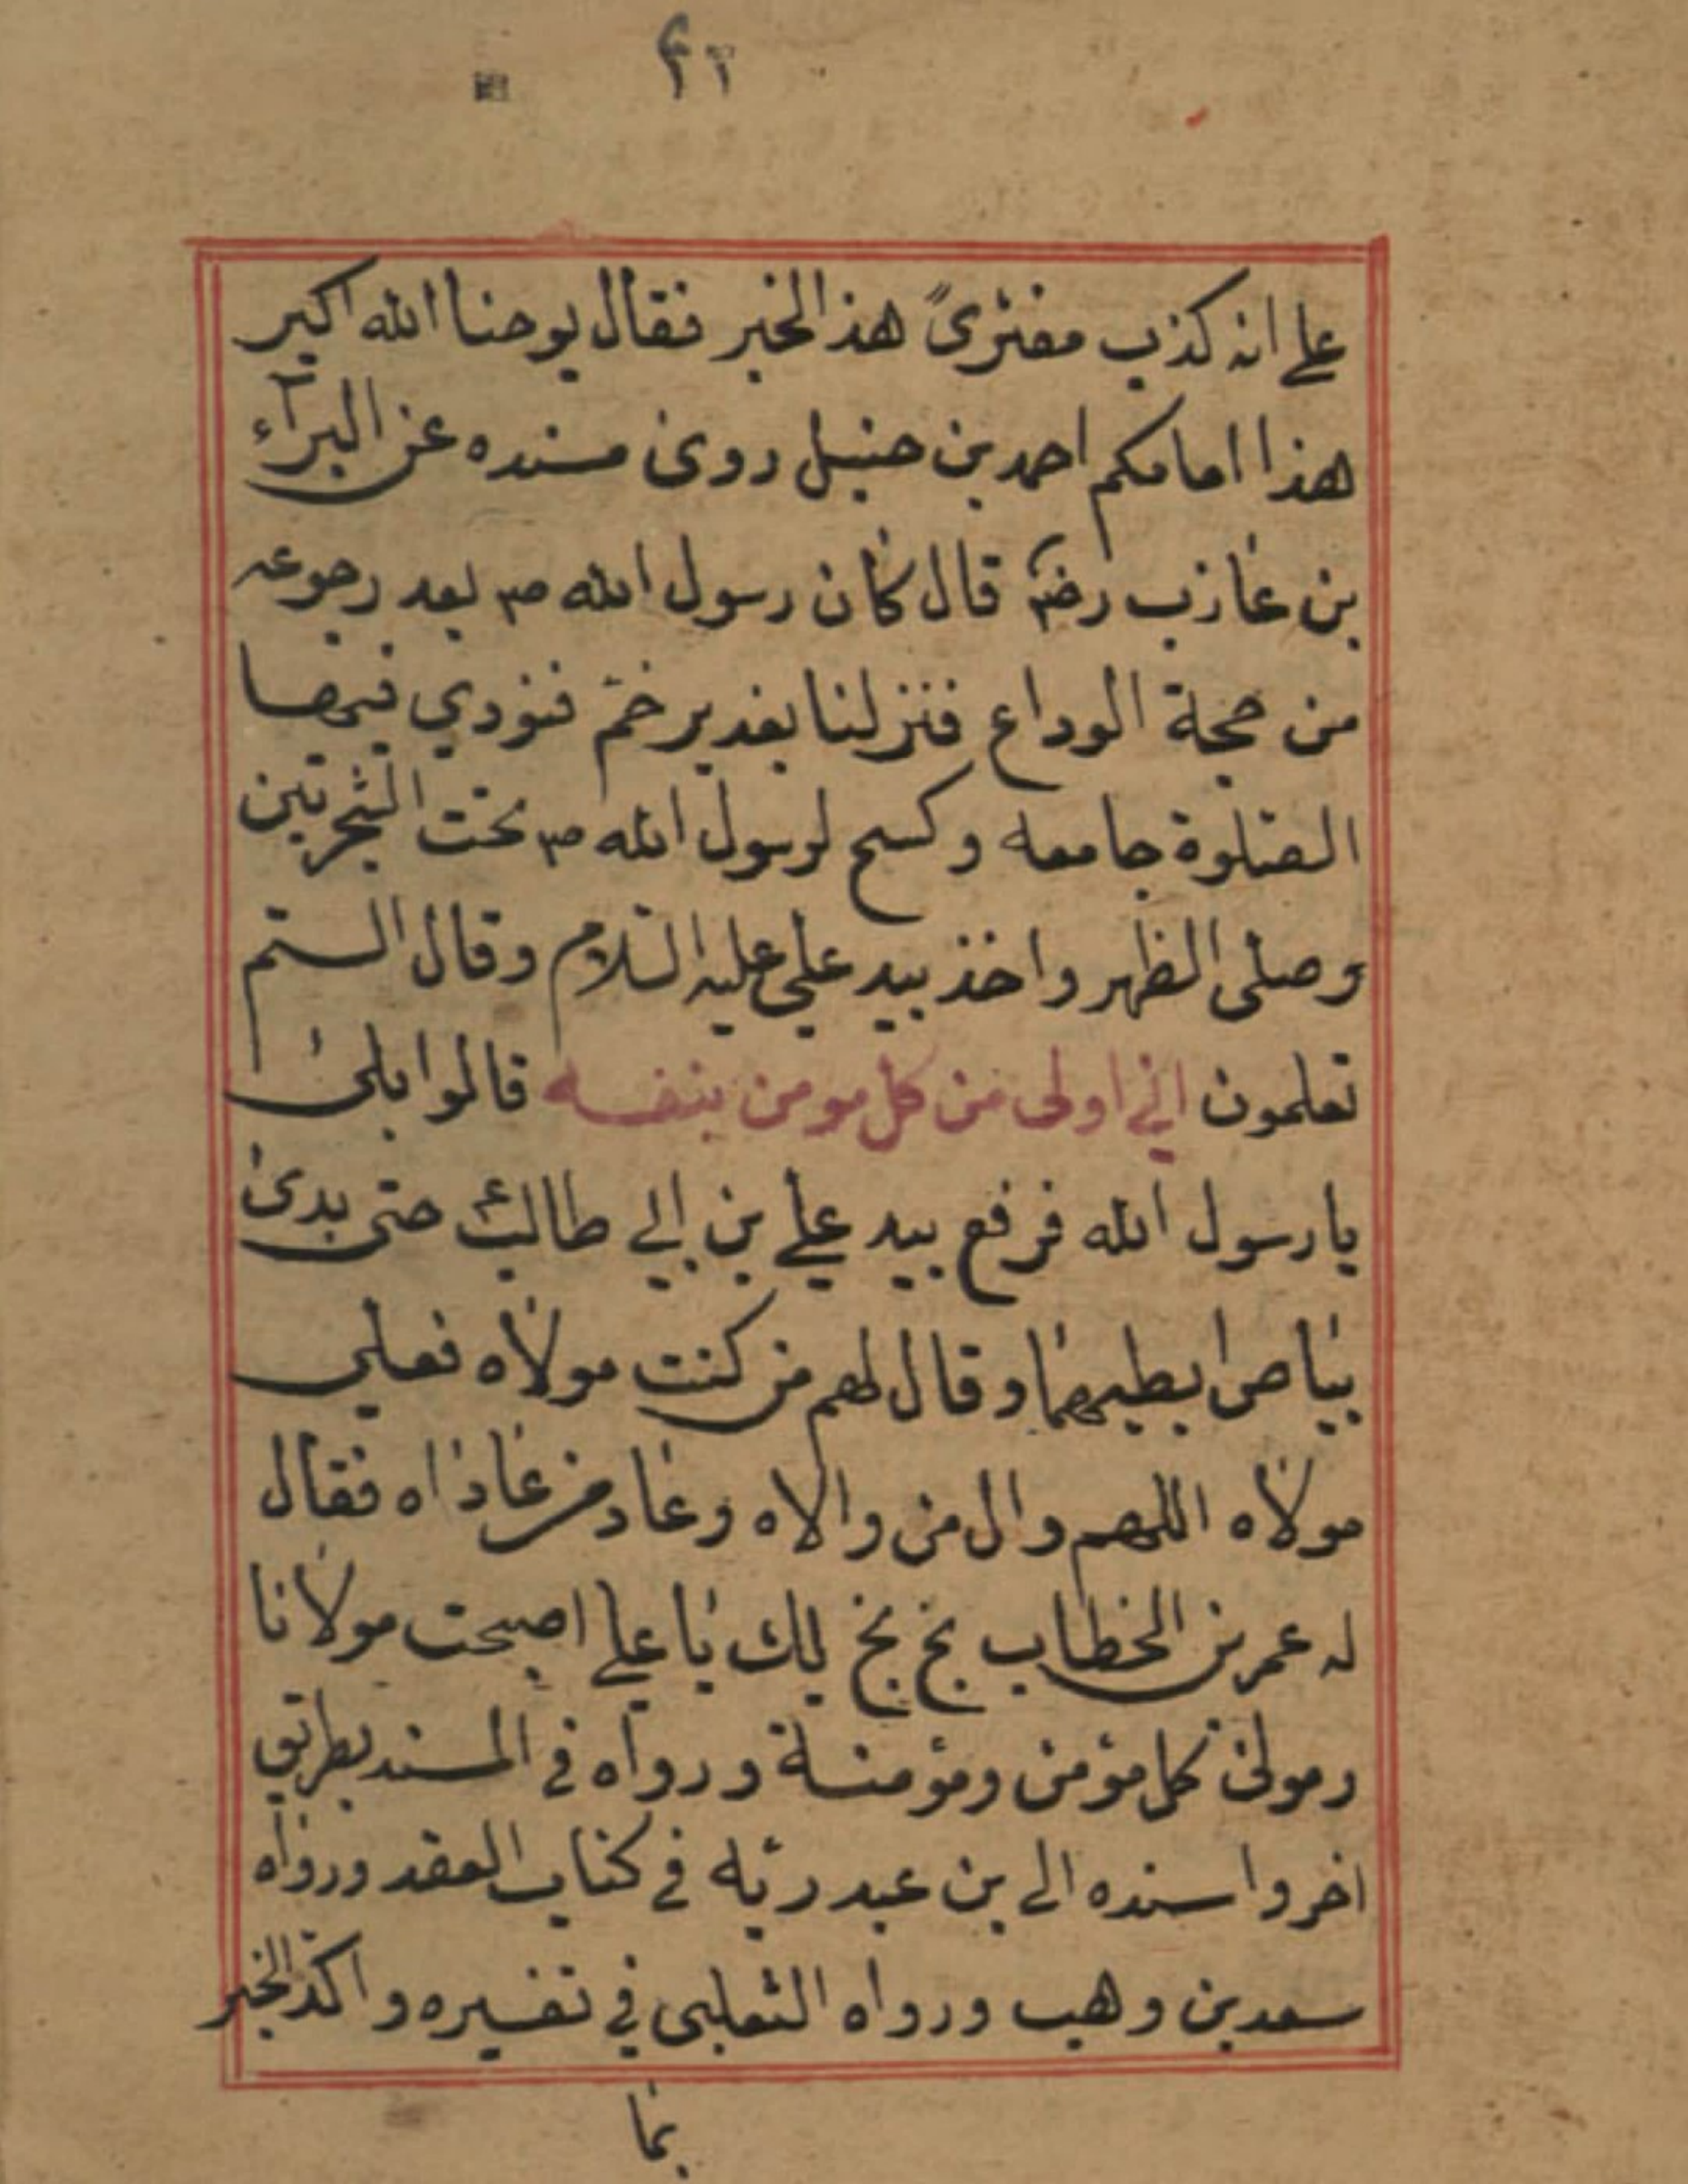 على انه كذب مفترىً هذا الخبر فقال يوحنا الله اكبر
هذا امامكم احمد بن حنبل روى مسنده عن البرآء
بن عازب رضه قال كان رسول الله ص بعد رجوعه
من حجة الوداع فنزلنا بغدير خمّ فنودي فيها
الصّلوة جامعه وكسح لرسول الله ص تحت الشجرتين
وصلى الظهر واخذ بيد علي عليه السّلام وقال الستم
تعلمون اني اولى من كل مومن بنفسه قالوا بلى
يا رسول الله فرفع بيد علي بن ابي طالب ع حتى بدى
بياض ابطيهما وقال لهم من كنت مولاه فعلي
مولاه اللهم وال من والاه وعاد من عاداه فقال
له عمر بن الخطاب بخ بخ لك يا علي اصبحت مولانا
ومولى كل مؤمن ومؤمنة ورواه في المسند بطريق
اخر واسنده الى بن عبد ربّه في كتاب العقد ورواه
سعد بن وهيب ورواه الثعلبي في تفسيره واكّد الخبر
بما